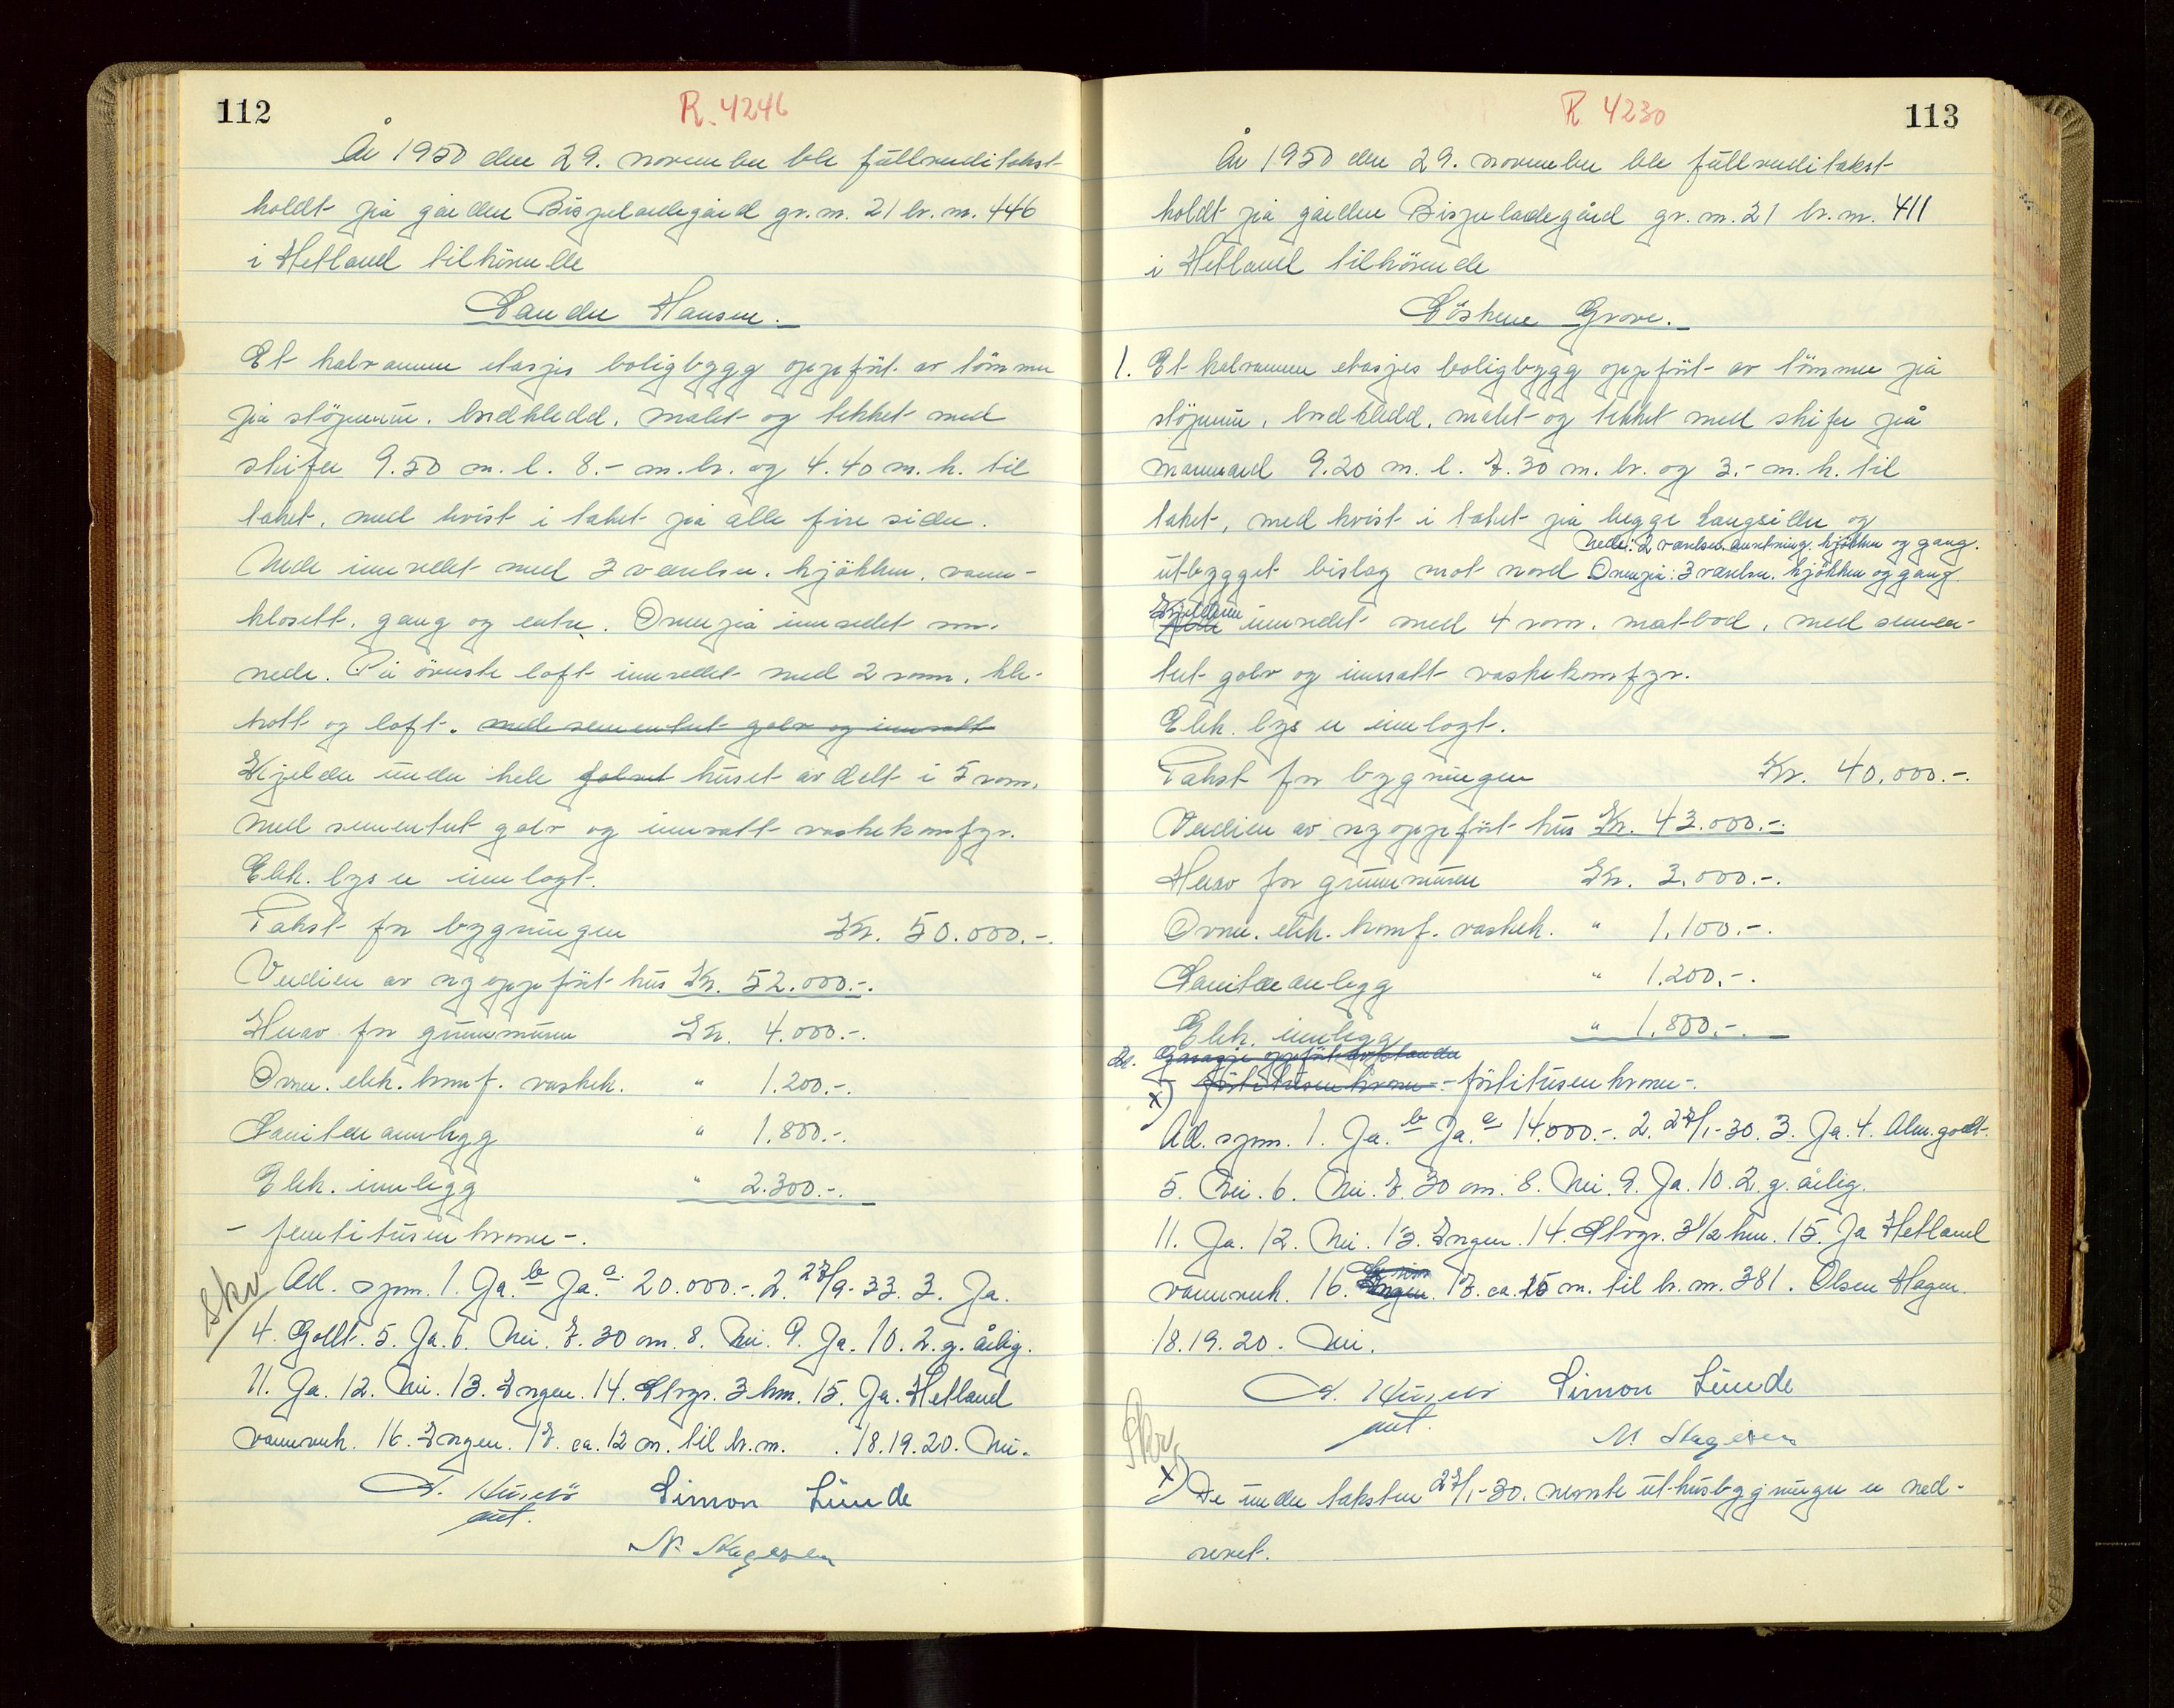 112
R. 4246
År 1950 den 29. november ble fullverditakst
holdt på gården Bispeladegård gr.nr. 21 br.nr. 446
i Hetland tilhörende
Sander Hansen.
Et halvannen etasjes boligbygg oppfört av tömmer
på stöpemur, bordkledd, malet og tekket med
skifer 9.50 m. l. 8.- m. br. og 4.40 m. h. til
taket, med kvist i taket på alle fire sider.
Nede innredet med 3 værelser, kjökken, vann-
klosett, gang og entre. Ovenpå innredet som
nede. På överste loft innredet med 2 rom, kle-
kott og loft. med sementert golv og innsatt
Kjelder under hele golvet huset avdelt i 5 rom,
med sementert golv og innsatt vaskekomfyr.
Elek. lys er innlagt.
Takst for bygningen Kr. 50.000.-.
Verdien av nyoppfört hus Kr. 52.000.-.
Herav for grunnmuren Kr. 4.000.-.
Ovner. elek. komf. vaskek. " 1.200.-.
Sanitæranlegg " 1.800.-.
Elek. innlegg " 2.300.-.
- femtitusen kroner -.
Skv
Ad. spm. 1. Ja. b Ja. c. 20.000.-. 2. 27/9-33. 3. Ja.
4. Godt. 5. Ja. 6. Nei. 7. 30 cm. 8. Nei. 9. Ja. 10. 2. g. årlig.
11. Ja. 12. Nei. 13. Ingen. 14. Stvgr. 3 km. 15. Ja. Hetland
vannverk. 16. Ingen. 17. ca. 12 m. til br.nr. . 18.19.20. Nei.
Simon Lunde
113
R 4230
År 1950 den 29. november ble fullverditakst
holdt på gården Bispeladegård gr.nr. 21 br.nr. 411
i Hetland tilhörende
Söskene Grove.
1. Et halvannen etasjes boligbygg oppfört av tömmer på
stöpemur, bordkledd, malet og tekket med skifer på
mannard 9.20 m. l. 7.30 m. br. og 3.- m. h. til
taket, med kvist i taket på begge langsider og
Nede: 2 værelser. anretning. kjökken og gang.
utbygget bislag mot nord Ovenpå: 3 værelser. kjökken og gang
Kjelderen
Nede innredet med 4 rom, matbod, med semen-
tert golv og innsatt vaskekomfyr.
Elek. lys er innlagt.
Takst for bygningen Kr. 40.000.-.
Verdien av nyoppfört hus Kr. 43.000.-.
Herav for grunnmuren Kr. 3.000.-.
Ovner. elek. komf. vaskek. " 1.100.-.
Sanitæranlegg " 1.200.-.
Elek. innlegg " 1.800.-.
2. Garasje oppfört av
x) förtitusen kroner - förtitusen kroner -.
Ad. spm. 1. Ja. b Ja. c 14000.-. 2. 27/1-30. 3. Ja. 4. Alm. godt.
5. Nei. 6. Nei. 7. 30 cm. 8. Nei. 9. Ja. 10. 2. g. årlig.
11. Ja. 12. Nei. 13. Ingen. 14. Stvgr. 3 1/2 km. 15. Ja Hetland
vannverk. 16. Ingen. 17. ca. 15 m. til br.nr. 381. Olsen Hagen.
18.19.20. Nei.
Simon Lunde
Skv
x) De under taksten 27/1-30. nevnte uthusbygninger er ned-
revet.